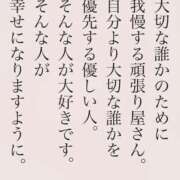 大切な誰かのために
我慢する頑張り屋さん。
自分より大切な誰かを
優先する優しい人。
そんな人が大好きです。
そんな人が
幸せになりますように。